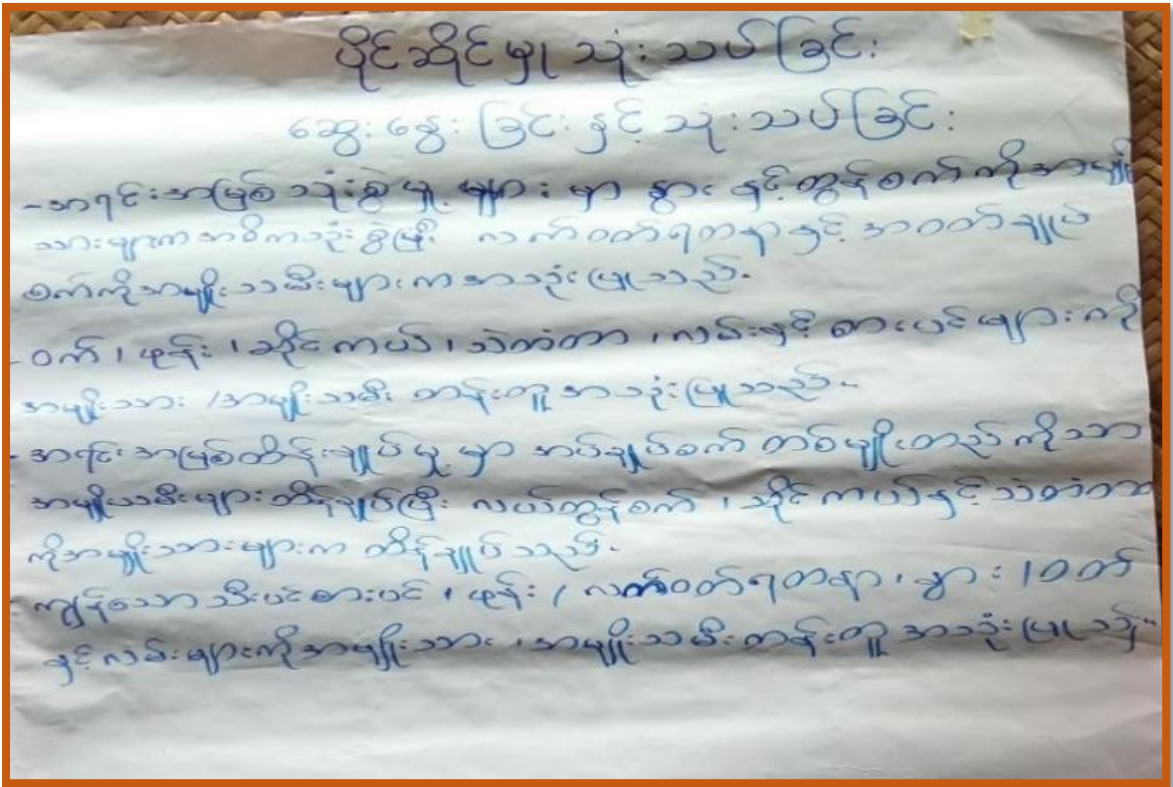 ပိုင်ဆိုင်မှု သုံးသပ်ခြင်း
ဆွေးနွေးခြင်းနှင့် သုံးသပ်ခြင်း
- အရင်းအမြစ်သုံးစွဲမှုများမှာ နွားနှင့်ထွန်စက်ကိုအမျိုး
သားများကအဓိကသုံးစွဲပြီး လက်ဝတ်ရတနာနှင့် အဝတ်ချုပ်
စက်ကိုအမျိုးသမီးများကအသုံးပြုသည်။
- ဝက်၊ ဖုန်း၊ ဆိုင်ကယ်၊ သဲတံတာ၊ လမ်းနှင့် စားပင်များကို
အမျိုးသား /အမျိုးသမီး တန်းတူအသုံးပြုသည်။
- အရင်းအမြစ်ထိန်းချုပ်မှုမှာ အပ်ချုပ်စက် တစ်မျိုးတည်းကိုသာ
အမျိုးသမီးများထိန်းချုပ်ပြီး လယ်ထွန်စက်၊ ဆိုင်ကယ်နှင့်သဲတံတာ
ကိုအမျိုးသားများက ထိန်းချုပ်သည်။
- ကျန်သောသီးပင်စားပင်၊ ဖုန်း / လက်ဝတ်ရတနာ၊ နွား၊ ဝက်
နှင့်လမ်းများကိုအမျိုးသား၊ အမျိုးသမီးတန်းတူအသုံးပြုသည်။